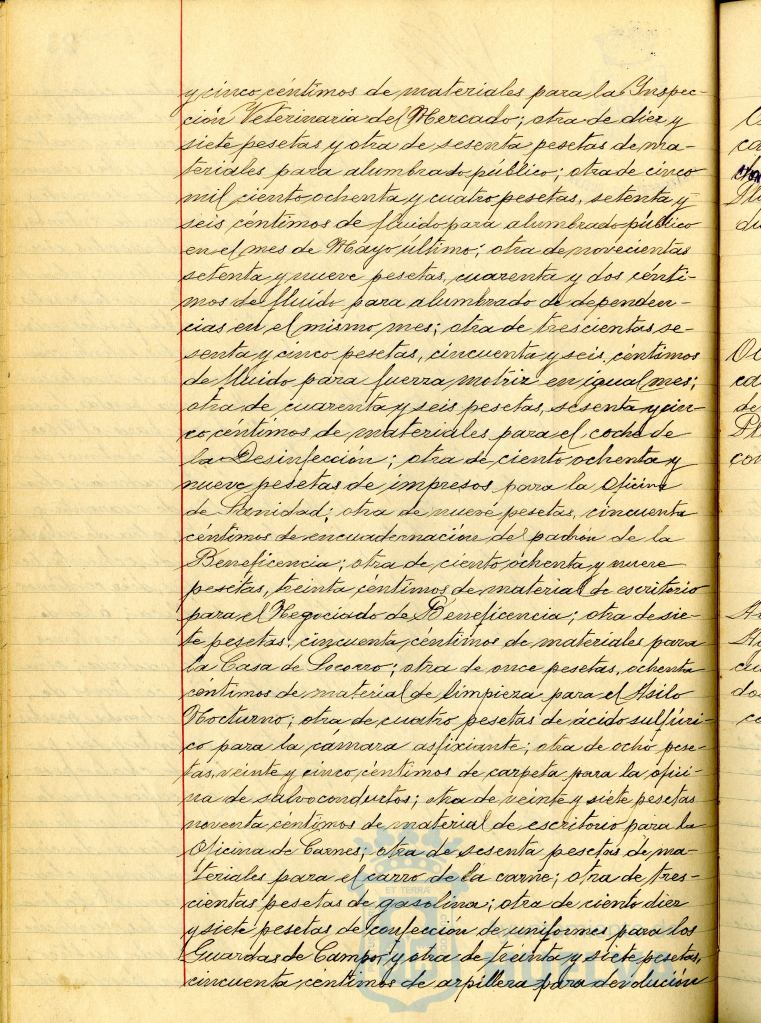 y cinco céntimos de materiales para la Inspec-
ción Veterinaria del Mercado; otra de diez y
siete pesetas y otra de sesenta pesetas de ma-
teriales para alumbrado público; otra de cinco
mil ciento ochenta y cuatro pesetas, setenta y
seis céntimos de fluido para alumbrado público
en el mes de Mayo último; otra de novecientas
setenta y nueve pesetas, cuarenta y dos cénti-
mos de fluido para alumbrado de dependen-
cias en el mismo mes; otra de trescientas se-
senta y cinco pesetas, cincuenta y seis céntimos
de fluido para fuerza motriz en igual mes;
otra de cuarenta y seis pesetas, sesenta y cin-
co céntimos de materiales para el coche de
la Desinfección; otra de ciento ochenta y
nueve pesetas de impresos para la Oficina
de Sanidad; otra de nueve pesetas, cincuenta
céntimos de encuadernación del padrón de la
Beneficencia; otra de ciento ochenta y nueve
pesetas, treinta céntimos de material de escritorio
para el Negociado de Beneficencia; otra de sie-
te pesetas, cincuenta céntimos de materiales para
la Casa de Socorro; otra de once pesetas, ochenta
céntimos de material de limpieza para el Asilo
Nocturno; otra de cuatro pesetas de ácido sulfúri-
co para la cámara asfixiante; otra de ocho pese-
tas, veinte y cinco céntimos de carpeta para la ofici-
na de salvoconductos; otra de veinte y siete pesetas
noventa céntimos de material de escritorio para la
Oficina de Carnes; otra de sesenta pesetas de ma-
teriales para el carro de la carne; otra de tres-
cientas pesetas de gasolina; otra de ciento diez
y siete pesetas de confección de uniformes para los
Guardas de Campo, y otra de treinta y siete pesetas,
cincuenta céntimos de arpillera para devolución
ET TERRA
HUELVA